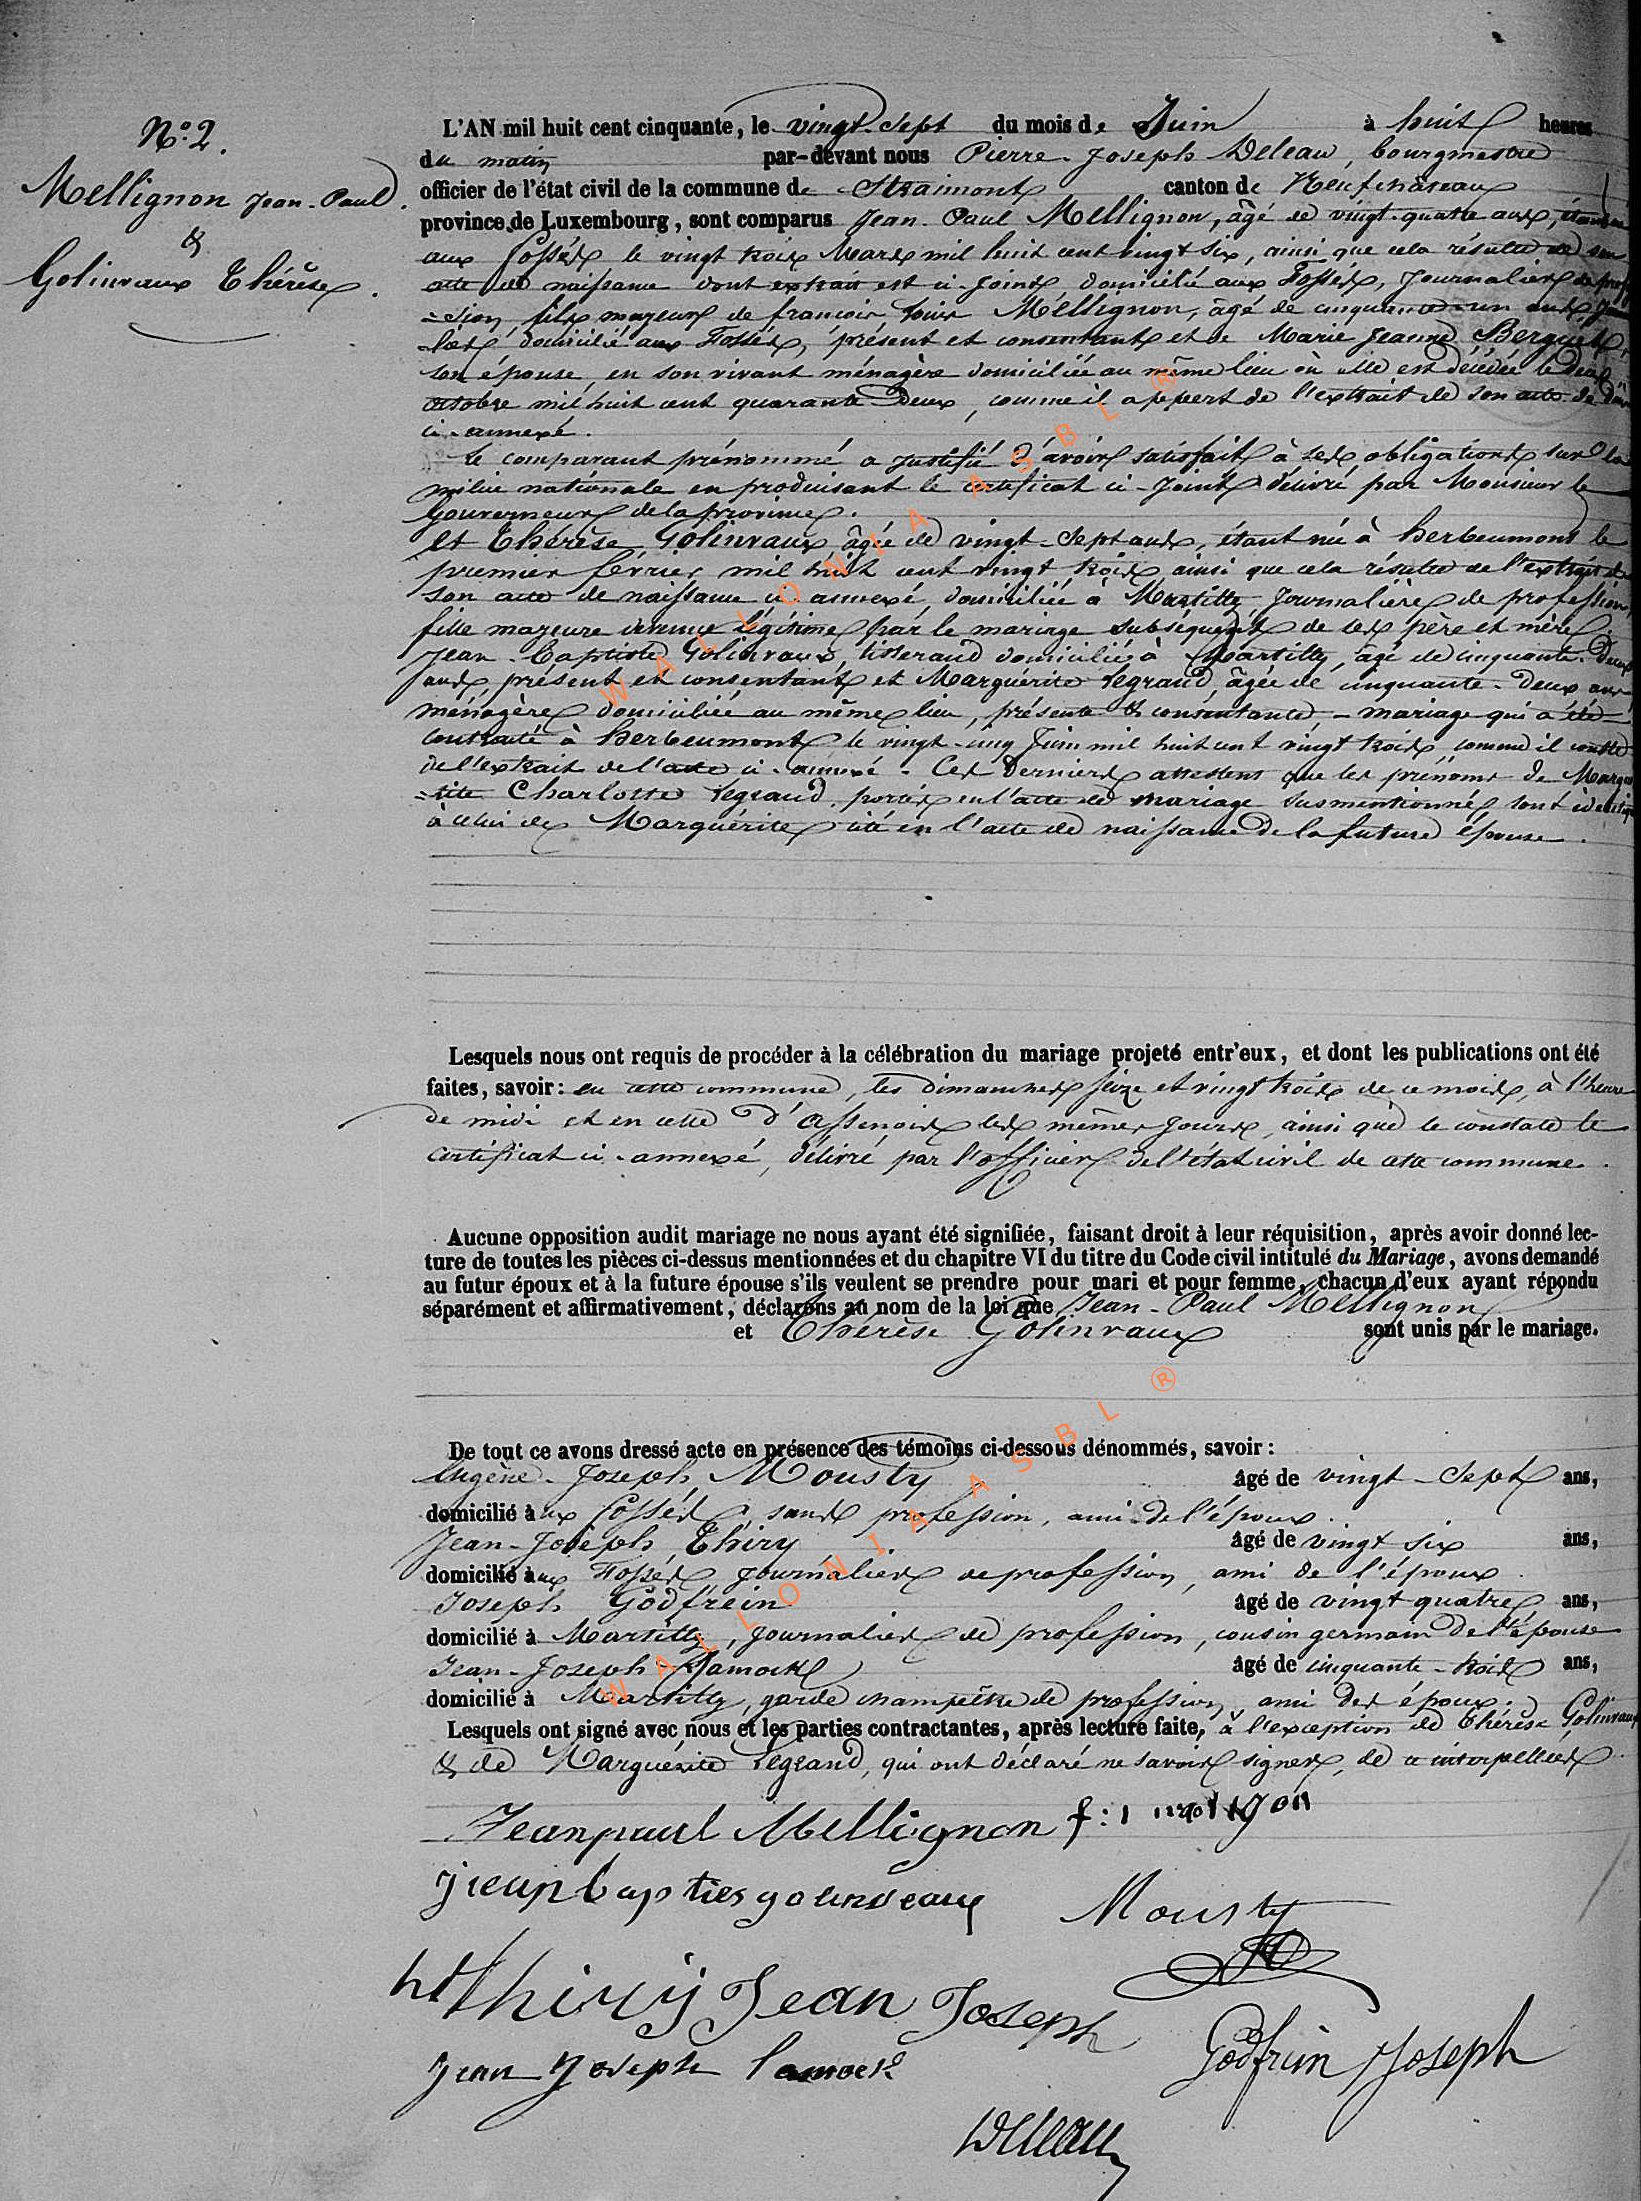 N.° 2.
Mellignon Jean-Paul.
&
Golinvaux Thérèse.
L'AN mil huit cent cinquante, le vingt-sept du mois de Juin à huit heures
du matin par-devant nous Pierre-Joseph Deleau, bourgmestre
officier de l'état civil de la commune de Straimont canton de Neufchâteau
province de Luxembourg, sont comparus Jean-Paul Mellignon, âgé de vingt-quatre ans, étant né
aux fossés le vingt trois Mars mil huit cent vingt six, ainsi que cela résulte de son
acte de naissance dont extrait est ci-joint, domicilié aux Fossés, Journalier de profes
-sion, fils majeur de francois Louis Mellignon, âgé de cinquante-un ans,
domicilié aux Fossés, présent et consentant et de Marie Jeanne Berguet,
son épouse, en son vivant ménagère domiciliée au même lieu où elle est décédée le deux
octobre mil huit cent quarante deux, comme il appert de l'extrait de son acte de
ci-annexé.
Le comparant prénommé a justifié d'avoir satisfait à ses obligations sur la
milice nationale en produisant le certificat ci-joint délivré par Monsieur le
Gouverneur de la province.
et Thérèse Golinvaux âgée de vingt-sept ans, étant née à herbeumont le
premier février mil huit cent vingt trois, ainsi que cela résulte de l'extrait de
son acte de naissance ci-annexé, domiciliée à Martilly, Journalière de profession,
fille majeure devenue légitime par le mariage subséquent de ses père et mère
Jean-Baptiste Golinvaux, tisserand domicilié à Martilly, âgé de cinquante-deux
ans, présent et consentant et Marguérite Legrand, âgée de cinquante-deux ans
ménagère domiciliée au même lieu, présente & consentante, - mariage qui a été
contracté à herbeumont le vingt-cinq Juin mil huit cent vingt trois, comme il conste
de l'extrait de l'acte ci-annexé. Ces derniers attestent que les prénoms de Margué
-rite Charlotte Legrand, portés en l'acte de mariage susmentionné sont identiques
à celui de Marguérite cité en l'acte de naissance de la future épouse.
Lesquels nous ont requis de procéder à la célébration du mariage projeté entr'eux, et dont les publications ont été
faites, savoir: en cette commune, les dimanches seize et vingt trois de ce mois, à l'heure
de midi et en celle d'assenois les mêmes jours, ainsi que le constate le
certificat ci-annexé, délivré par l'officier de l'état civil de cette commune.
Aucune opposition audit mariage ne nous ayant été signifiée, faisant droit à leur réquisition, après avoir donné lec-
ture de toutes les pièces ci-dessus mentionnées et du chapitre VI du titre du Code civil intitulé du Mariage, avons demandé
au futur époux et à la future épouse s'ils veulent se prendre pour mari et pour femme, chacun d'eux ayant répondu
séparément et affirmativement, déclarons au nom de la loi que Jean-Paul Mellignon
et Thérèse Golinvaux sont unis par le mariage.
De tout ce avons dressé acte en présence des témoins ci-dessous dénommés, savoir:
Eugène-Joseph Mousty âgé de vingt-sept ans,
domicilié aux fossés, sans profession, ami de l'époux.
Jean-Joseph Thiry âgé de vingt six ans,
domicilié aux Fossés, Journalier de profession, ami de l'époux.
Joseph Godfrein âgé de vingt quatre ans,
domicilié à Martilly, Journalier de profession, cousin germain de l'épouse
Jean-Joseph Lamock âgé de cinquante-trois ans,
domicilié à Martilly, garde champêtre de profession, ami des époux.
Lesquels ont signé avec nous et les parties contractantes, après lecture faite, à l'exception de Thérèse Golinvaux
& de Marguérite Legrand, qui ont déclaré ne savoir signer, de ce interpellées.
Jeanpaul Mellignon
Mousty
thiry Jean Joseph
Godfrin Joseph
Jean Joseph lamock
Deleau
WALLONIA ASBL ®
WALLONIA ASBL ®